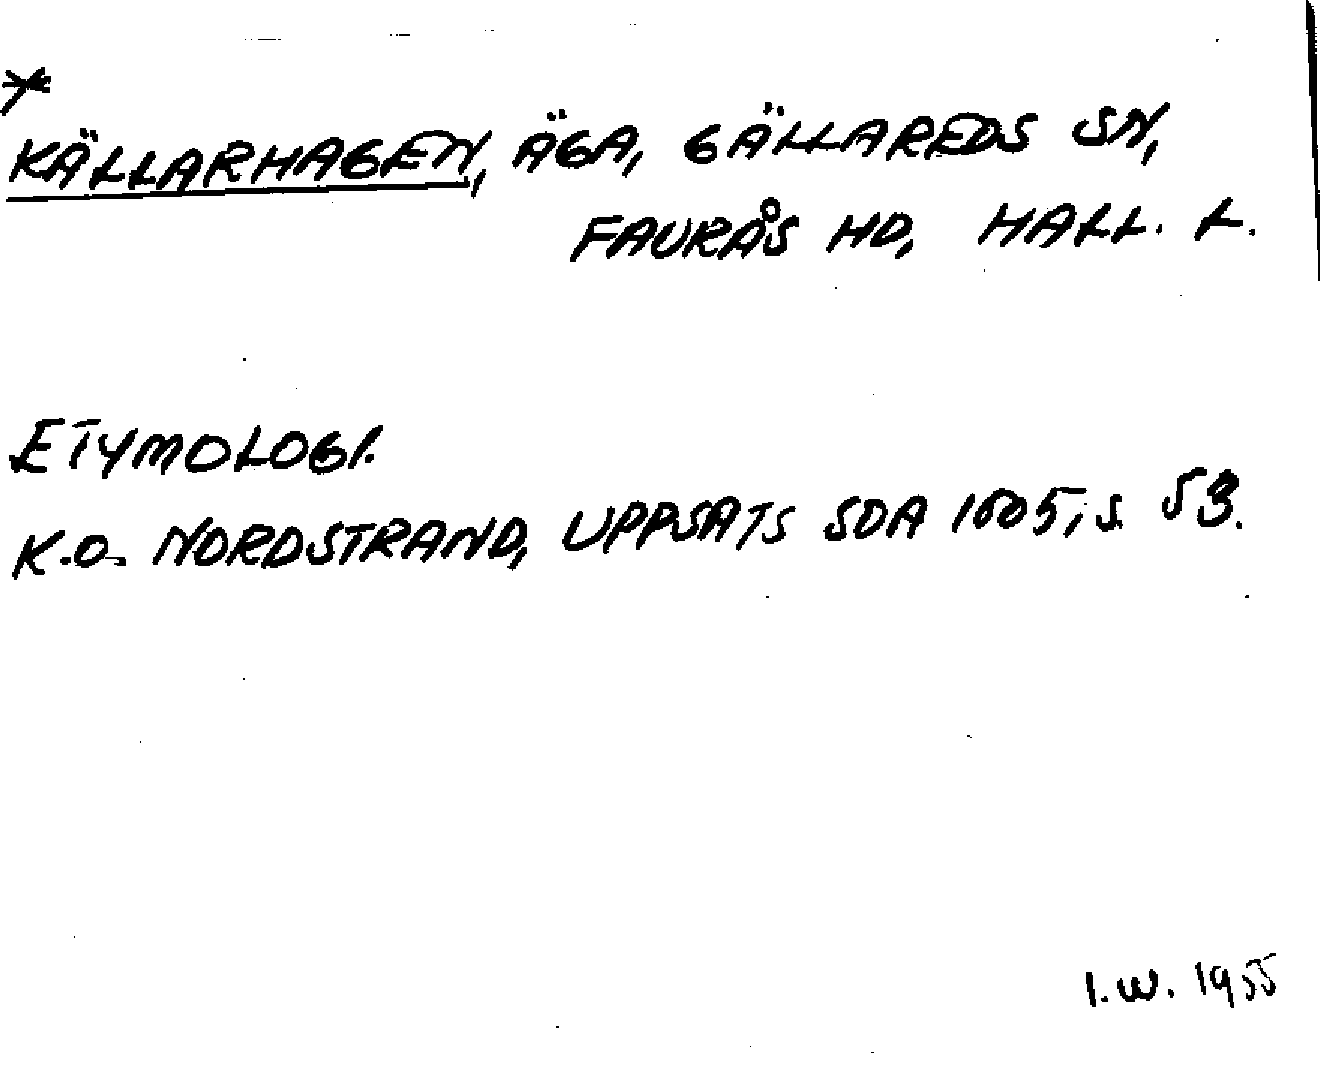 *
KÄLLARHAGEN, ÄGA, GÄLLAREDS SN,
FAURÅS HD, HALL. L.
ETYMOLOGI.
K.O. NORDSTRAND, UPPSATS SDA 1605, S. 53.
I.W. 1955